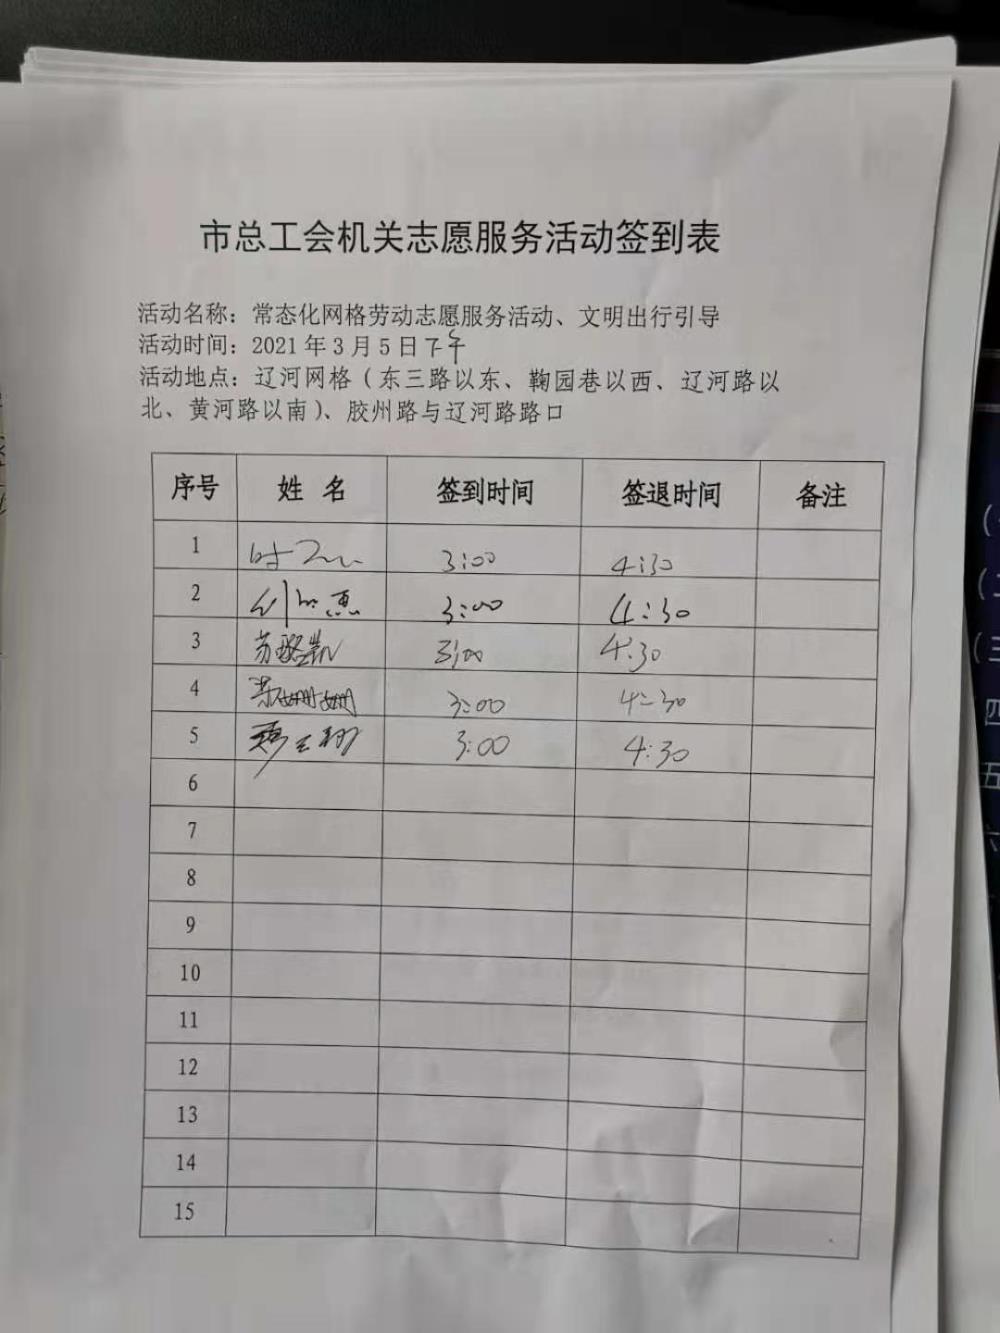 市总工会机关志愿服务活动签到表
活动名称：常态化网格劳动志愿服务活动、文明出行引导
活动时间：2021年3月5日下午
活动地点：辽河网格（东三路以东、鞠园巷以西、辽河路以
北、黄河路以南）、胶州路与辽河路路口
序号 姓 名 签到时间 签退时间 备注
1 3:00 4:30
2 3:00 4:30
3 3:00 4:30
4 3:00 4:30
5 3:00 4:30
6
7
8
9
10
11
12
13
14
15
四
五
六